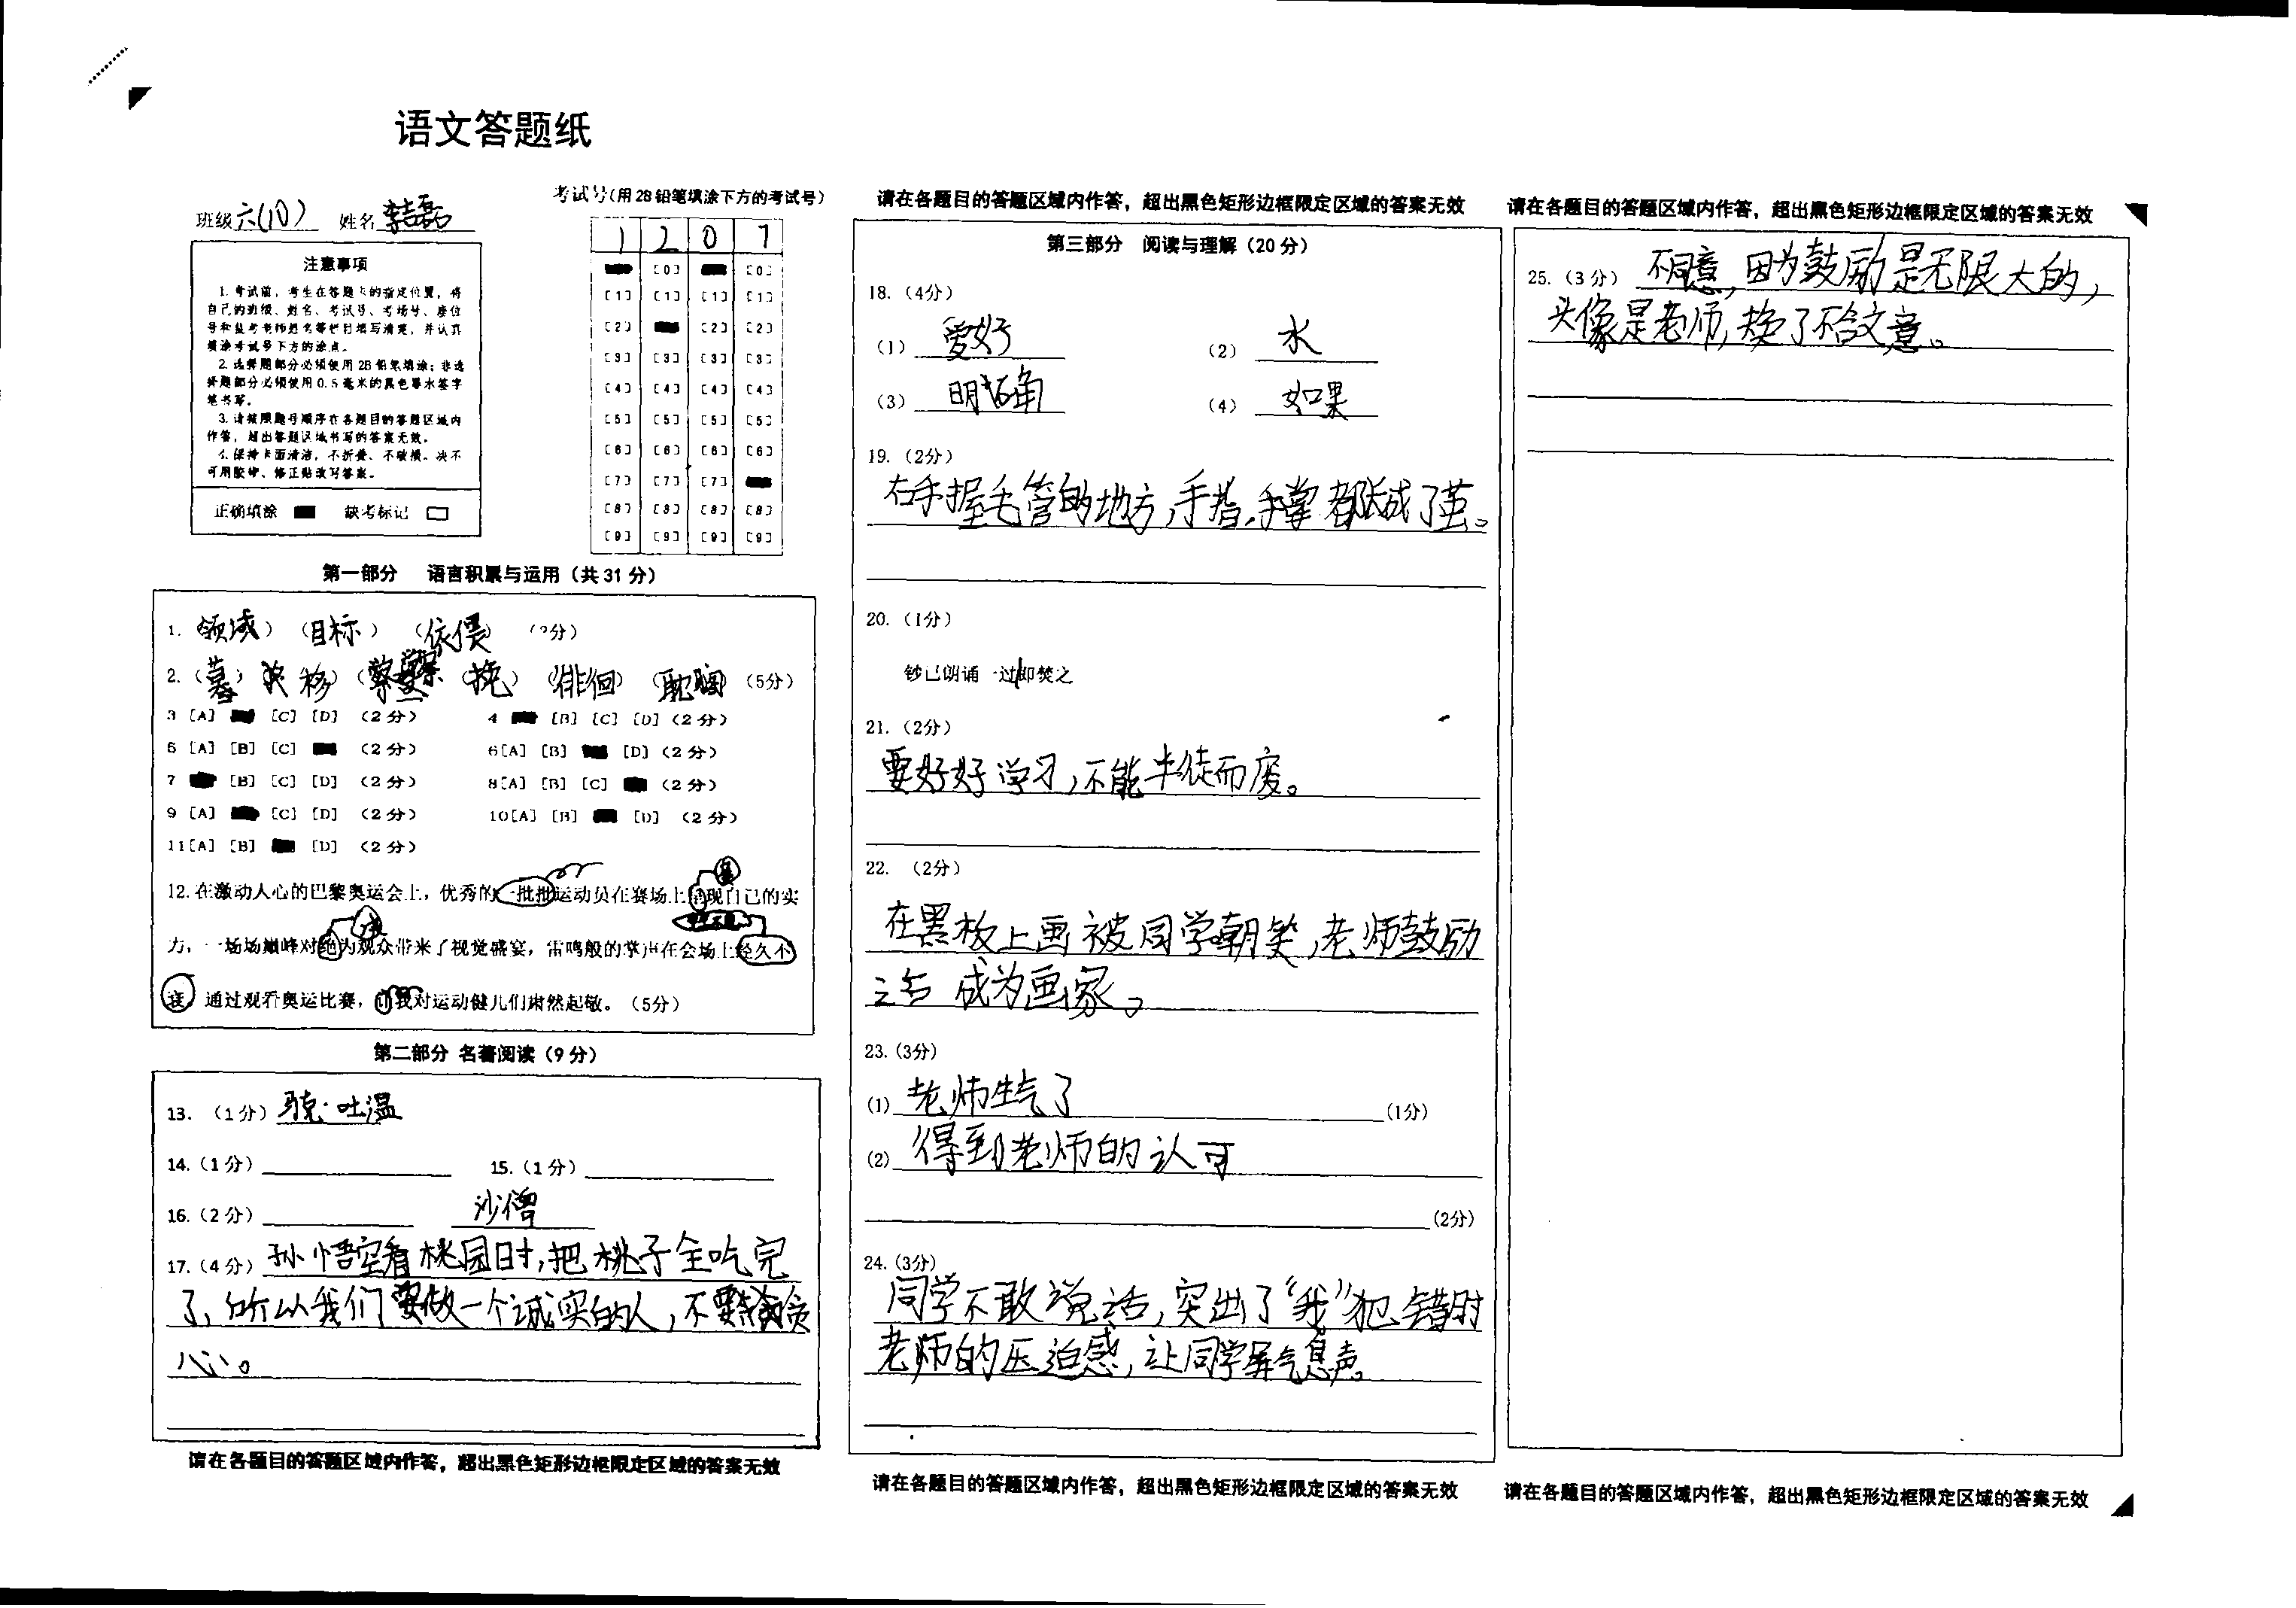 语文答题纸
班级 六(10) 姓名 李喆磊
考试号(用2B铅笔填涂下方的考试号)
1 2 0 7
注意事项
1. 考试前，考生在答题卡的指定位置，将
自己的班级、姓名、考试号、考场号、座位
号和监考老师姓名等栏目填写清楚，并认真
填涂考试号下方的涂点。
2. 选择题部分必须使用2B铅笔填涂；非选
择题部分必须使用0.5毫米的黑色墨水签字
笔书写。
3. 请按照题号顺序在各题目的答题区域内
作答，超出答题区域书写的答案无效。
4. 保持卡面清洁，不折叠、不破损。决不
可用胶带、修正贴改写答案。
正确填涂 缺考标记
[0] [0]
[1] [1] [1] [1]
[2] [2] [2]
[3] [3] [3] [3]
[4] [4] [4] [4]
[5] [5] [5] [5]
[6] [6] [6] [6]
[7] [7] [7]
[8] [8] [8] [8]
[9] [9] [9] [9]
第一部分 语言积累与运用（共31分）
1. (领域) (目标) (依偎) (3分)
2. (暮) (移) (挽) (徘徊) (5分)
3 [A] [C] [D] (2分) 4 [B] [C] [D] (2分)
5 [A] [B] [C] (2分) 6 [A] [B] [D] (2分)
7 [B] [C] [D] (2分) 8 [A] [B] [C] (2分)
9 [A] [C] [D] (2分) 10 [A] [B] [D] (2分)
11 [A] [B] [D] (2分)
12. 在激动人心的巴黎奥运会上，优秀的一批批运动员在赛场上现自己的实
力，一场场巅峰对绝为观众带来了视觉盛宴，雷鸣般的掌声在会场上经久不
通过观看奥运比赛，让我对运动健儿们肃然起敬。（5分）
第二部分 名著阅读（9分）
13.（1分） 骑克·吐温
14.（1分） 15.（1分）
16.（2分） 沙僧
17.（4分） 孙悟空看桃园时,把桃子全吃完
了,所以我们要做一个诚实的人,不要贪
心。
请在各题目的答题区域内作答，超出黑色矩形边框限定区域的答案无效
请在各题目的答题区域内作答，超出黑色矩形边框限定区域的答案无效
第三部分 阅读与理解（20分）
18.（4分）
(1) 爱好 (2) 水
(3) 明确 (4) 如果
19.（2分）
右手握毛管的地方,手指,手掌都长成了茧。
20.（1分）
钞已朗诵一过即焚之
21.（2分）
要好好学习,不能半徒而废。
22.（2分）
在黑板上画被同学朝笑,老师鼓励
之后成为画家。
23.（3分）
(1) 老师生气了 (1分)
(2) 得到老师的认可
(2分)
24.（3分）
同学不敢说话,突出了“我”犯错时
老师的压迫感,让同学屏气息声。
请在各题目的答题区域内作答，超出黑色矩形边框限定区域的答案无效
请在各题目的答题区域内作答，超出黑色矩形边框限定区域的答案无效
25.（3分） 不同意,因为鼓励是无限大的,
头像是老师,换了不合文意。
请在各题目的答题区域内作答，超出黑色矩形边框限定区域的答案无效